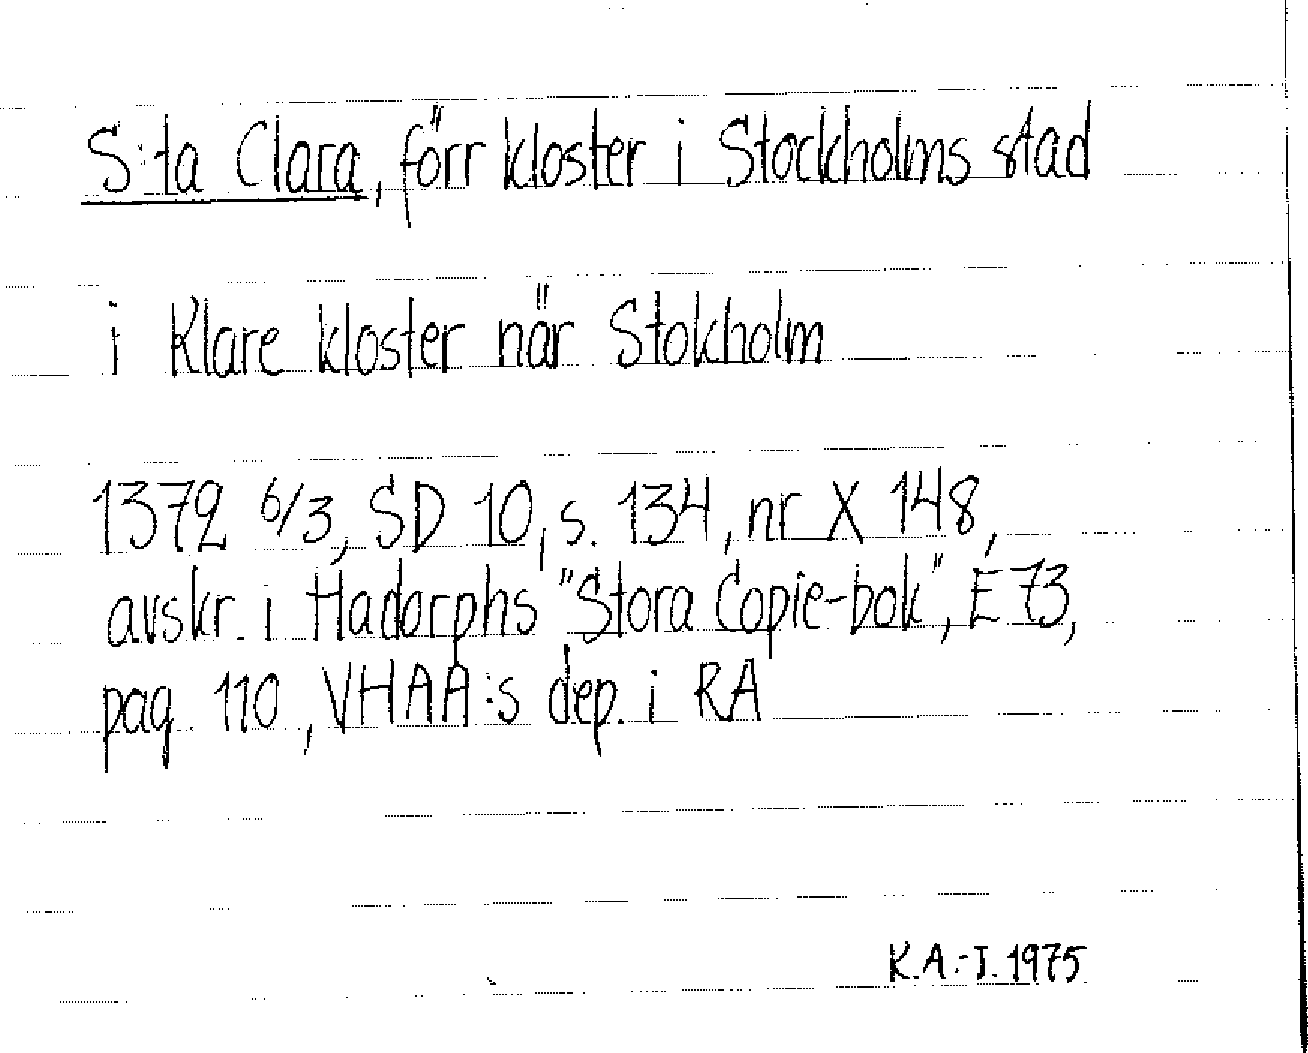 S:ta Clara, förr kloster i Stockholms stad
i Klare kloster när Stokholm
1372 6/3, SD 10, s. 134, nr X 148,
avskr. i Hadorphs "Stora Copie-bok", E 73,
pag. 110, VHAA:s dep. i RA
K.A.-I. 1975